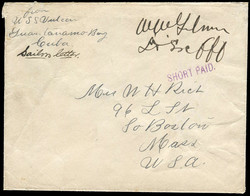 From
U.S.S. Vulcan
Guantanamo Bay
Cuba
Sailors letter.
SHORT PAID.
Mrs W H Rich
96 L St
So Boston
Mass
U.S.A.